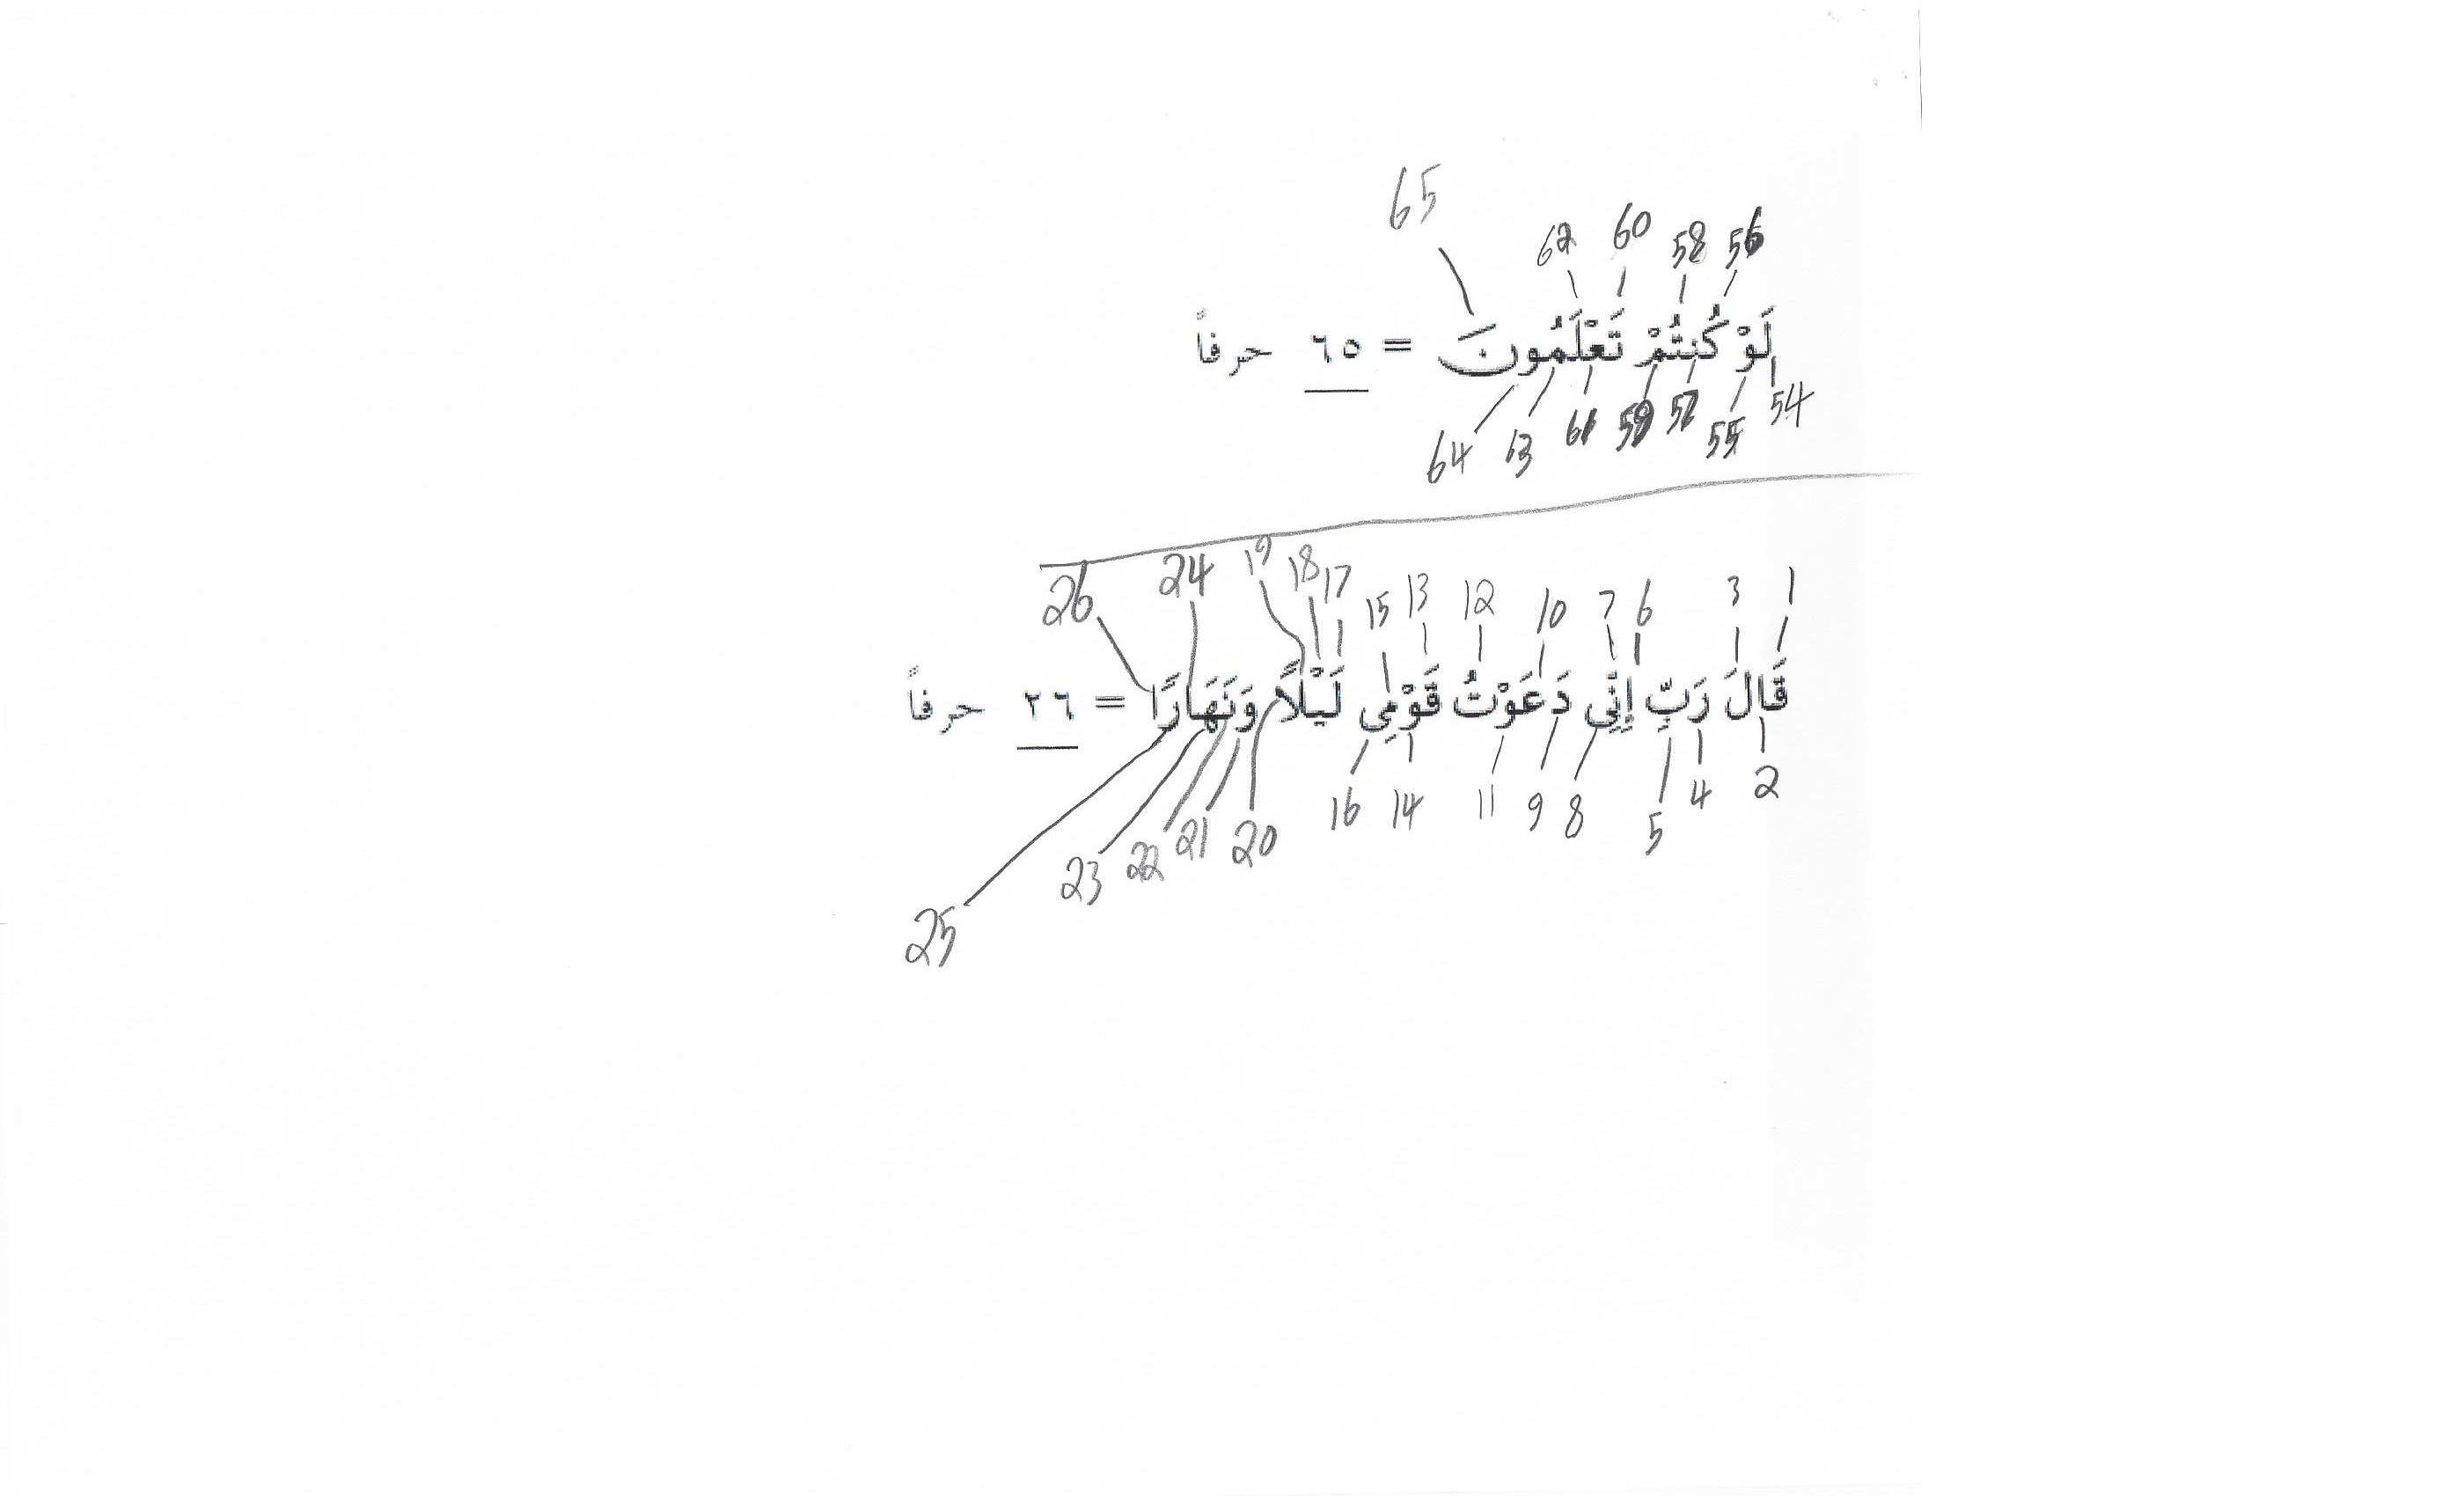 65
62 60 58 56
لَوْ كُنتُمْ تَعْلَمُونَ = ٦٥ حرفاً
64 63 61 59 57 55 54
26 24 19 18 17 15 13 12 10 7 6 3 1
قَالَ رَبِّ إِنِّى دَعَوْتُ قَوْمِى لَيْلًا وَنَهَارًا = ٢٦ حرفاً
25 23 22 21 20 16 14 11 9 8 5 4 2